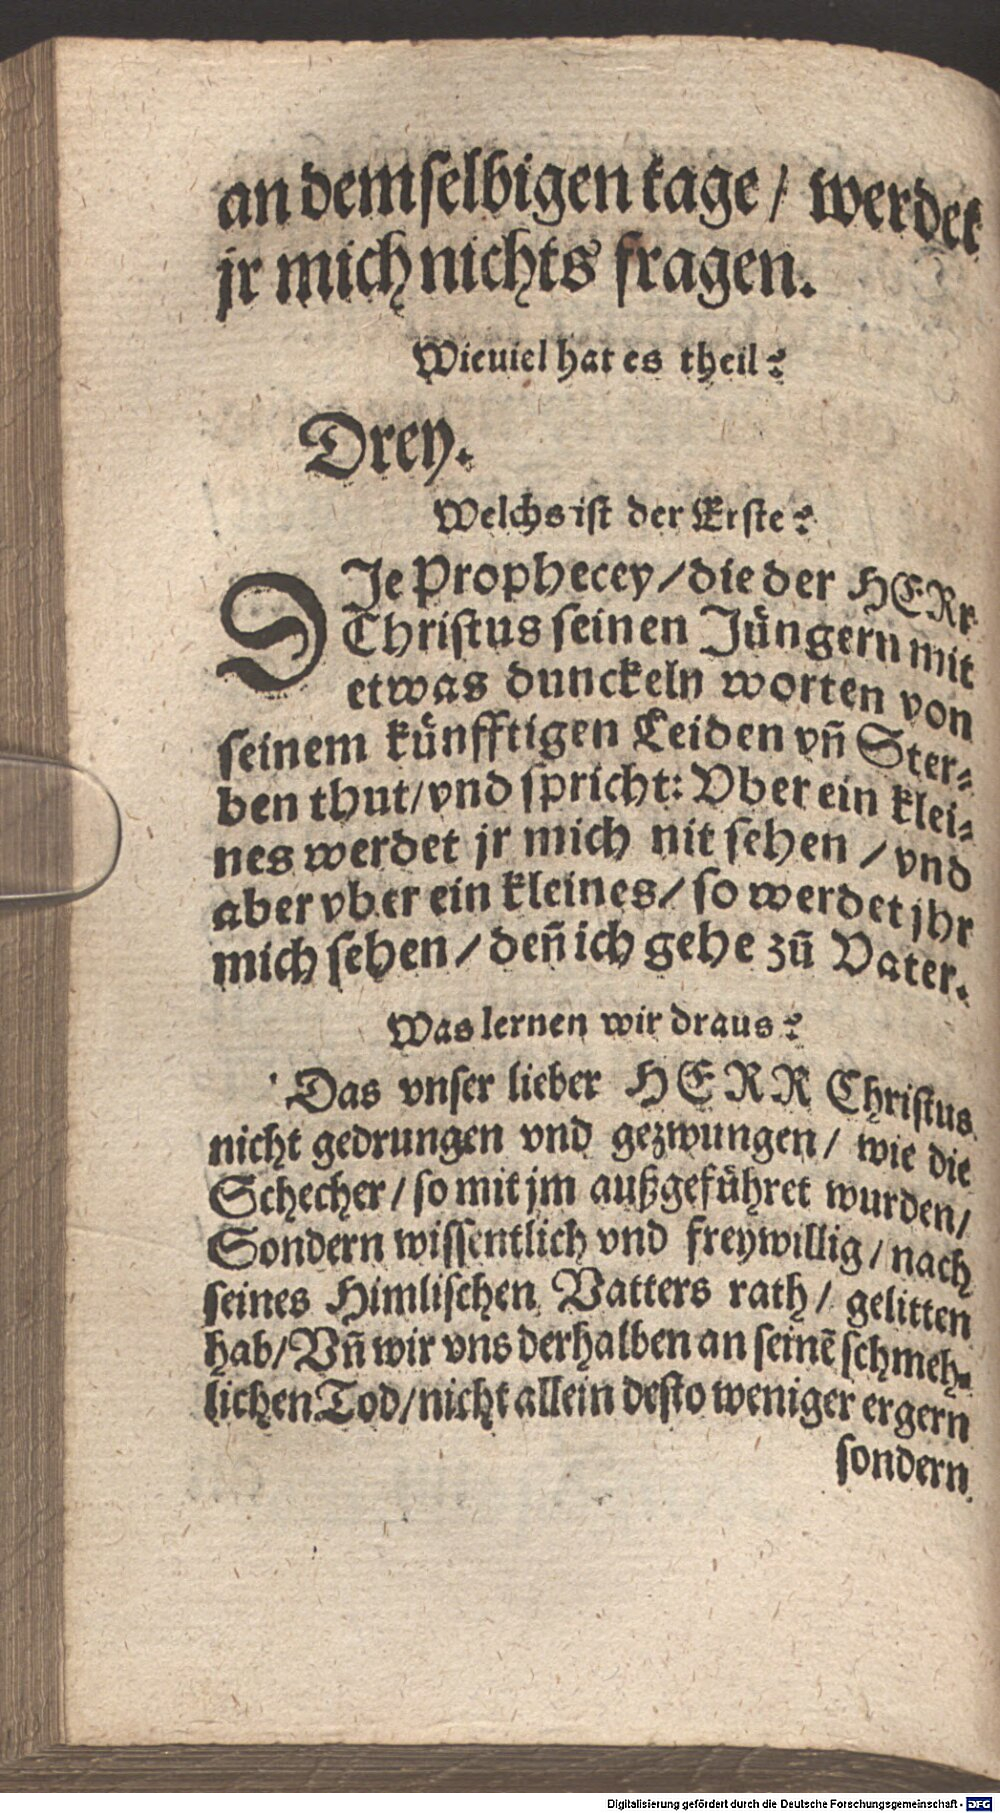 an demselbigen tage / werdet
jr mich nichts fragen.
Wieuiel hat es theil?
Drey.
Welchs ist der Erste?
DJe Prophecey / die der HERr
Christus seinen Jüngern mit
etwas dunckeln worten von
seinem künfftigen Leiden vñ Ster⸗
ben thut / vnd spricht: Vber ein klei⸗
nes werdet jr mich nit sehen / vnd
aber vber ein kleines / so werdet jhr
mich sehen / deñ ich gehe zū Vater.
Was lernen wir draus?
Das vnser lieber HERR Christus
nicht gedrungen vnd gezwungen / wie die
Schecher / so mit jm außgeführet wurden /
Sondern wissentlich vnd freywillig / nach
seines Himlischen Vatters rath / gelitten
hab / Vñ wir vns derhalben an seinē schmeh⸗
lichen Tod / nicht allein desto weniger ergern
sondern
Digitalisierung gefördert durch die Deutsche Forschungsgemeinschaft - DFG